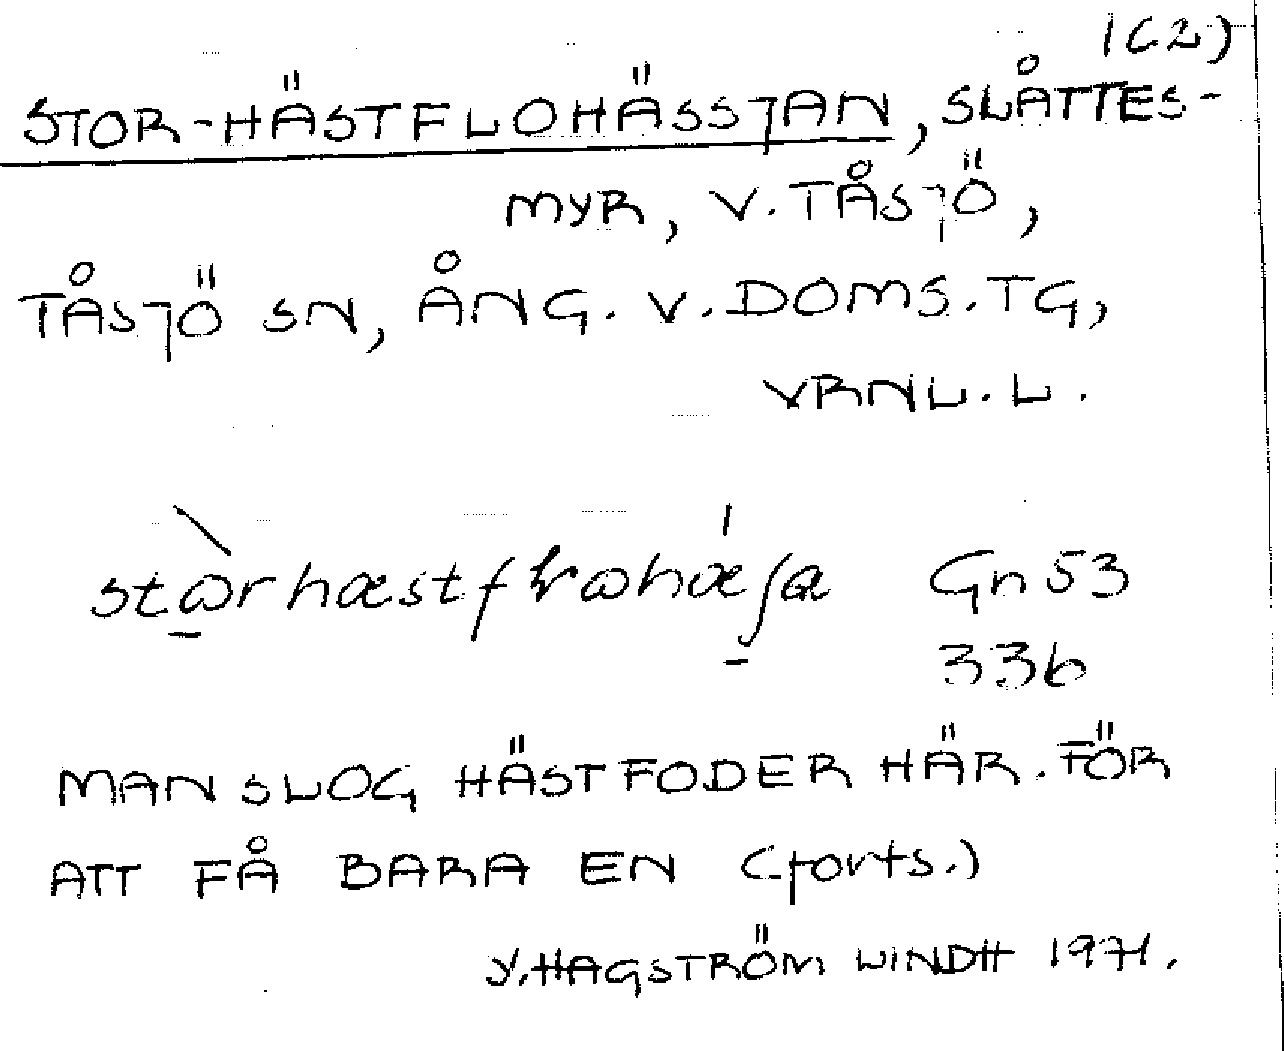 1(2)
STOR-HÄSTFLOHÄSSJAN, SLÅTTES-
MYR, V. TÅSJÖ,
TÅSJÖ SN, ÅNG. V. DOMS. TG,
VRNL. L.
Gn 53
33b
MAN SLOG HÄSTFODER HÄR. FÖR
ATT FÅ BARA EN (forts.)
Y. HAGSTRÖM WINDH 1971.